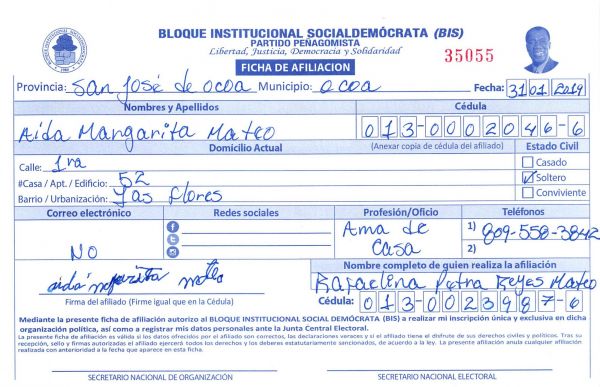 BLOQUE INSTITUCIONAL SOCIALDEMÓCRATA (BIS)
PARTIDO PEÑAGOMISTA
Libertad, Justicia, Democracia y Solidaridad
35055
FICHA DE AFILIACION
Provincia: San José de Ocoa Municipio: Ocoa Fecha: 31 01 2019
Nombres y Apellidos Cédula
Aida Margarita Mateo 013-0002046-6
Domicilio Actual (Anexar copia de cédula del afiliado) Estado Civil
Calle: 1ra Casado
#Casa / Apt. / Edificio: 52 Soltero
Barrio / Urbanización: Las Flores Conviviente
Correo electrónico Redes sociales Profesión/Oficio Teléfonos
NO Ama de Casa 1) 809-558-3842
2)
aida margarita mateo
Firma del afiliado (Firme igual que en la Cédula)
Nombre completo de quien realiza la afiliación
Rafaelina Petra Reyes Mateo
Cédula: 013-0023987-6
Mediante la presente ficha de afiliación autorizo al BLOQUE INSTITUCIONAL SOCIAL DEMÓCRATA (BIS) a realizar mi inscripción única y exclusiva en dicha
organización política, así como a registrar mis datos personales ante la Junta Central Electoral.
La presente ficha de afiliación es válida si los datos ofrecidos por el afiliado son correctos, las declaraciones veraces y si el afiliado tiene el disfrute de sus derechos civiles y políticos. Tras su
recepción, sello y firmas autorizadas el afiliado ejercerá todos los derechos y los deberes estatutariamente sancionados, de acuerdo a la Ley. La presente afiliación anula cualquier afiliación
realizada con anterioridad a la fecha que aparece en esta ficha.
SECRETARIO NACIONAL DE ORGANIZACIÓN SECRETARIO NACIONAL ELECTORAL